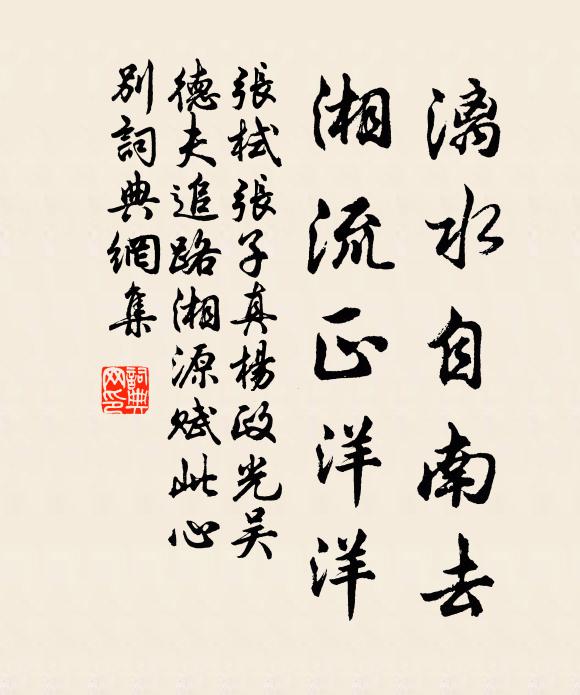 漓水自南去
湘流正洋洋
張栻張子真楊政光吴
德夫追路湘源賦此心
別詞典網集
詞典网印